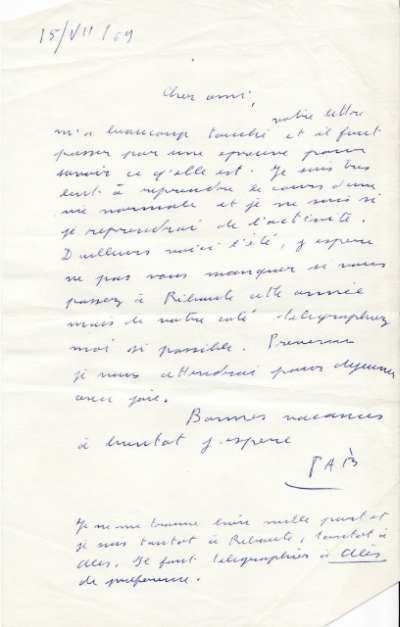 15/VII/69
Cher ami,
votre lettre
m'a beaucoup touché et il faut
passer par une épreuve pour
savoir ce qu'elle est. Je suis très
lent à reprendre le cours d'une
vie normale et je ne sais si
je reprendrai de l'activité.
D'ailleurs voici l'été, j espere
ne pas vous manquer si vous
passez à Ribaute cette année
mais de votre coté telegraphiez
moi si possible. Prevenu
je vous attendrai pour dejeuner
avec joie.
Bonnes vacances
à bientot j espere
PAB
Je ne me trouve bien nulle part et
je vais tantot à Ribaute, tantot à
Ales. Il faut telegraphier à Alès
de preference.